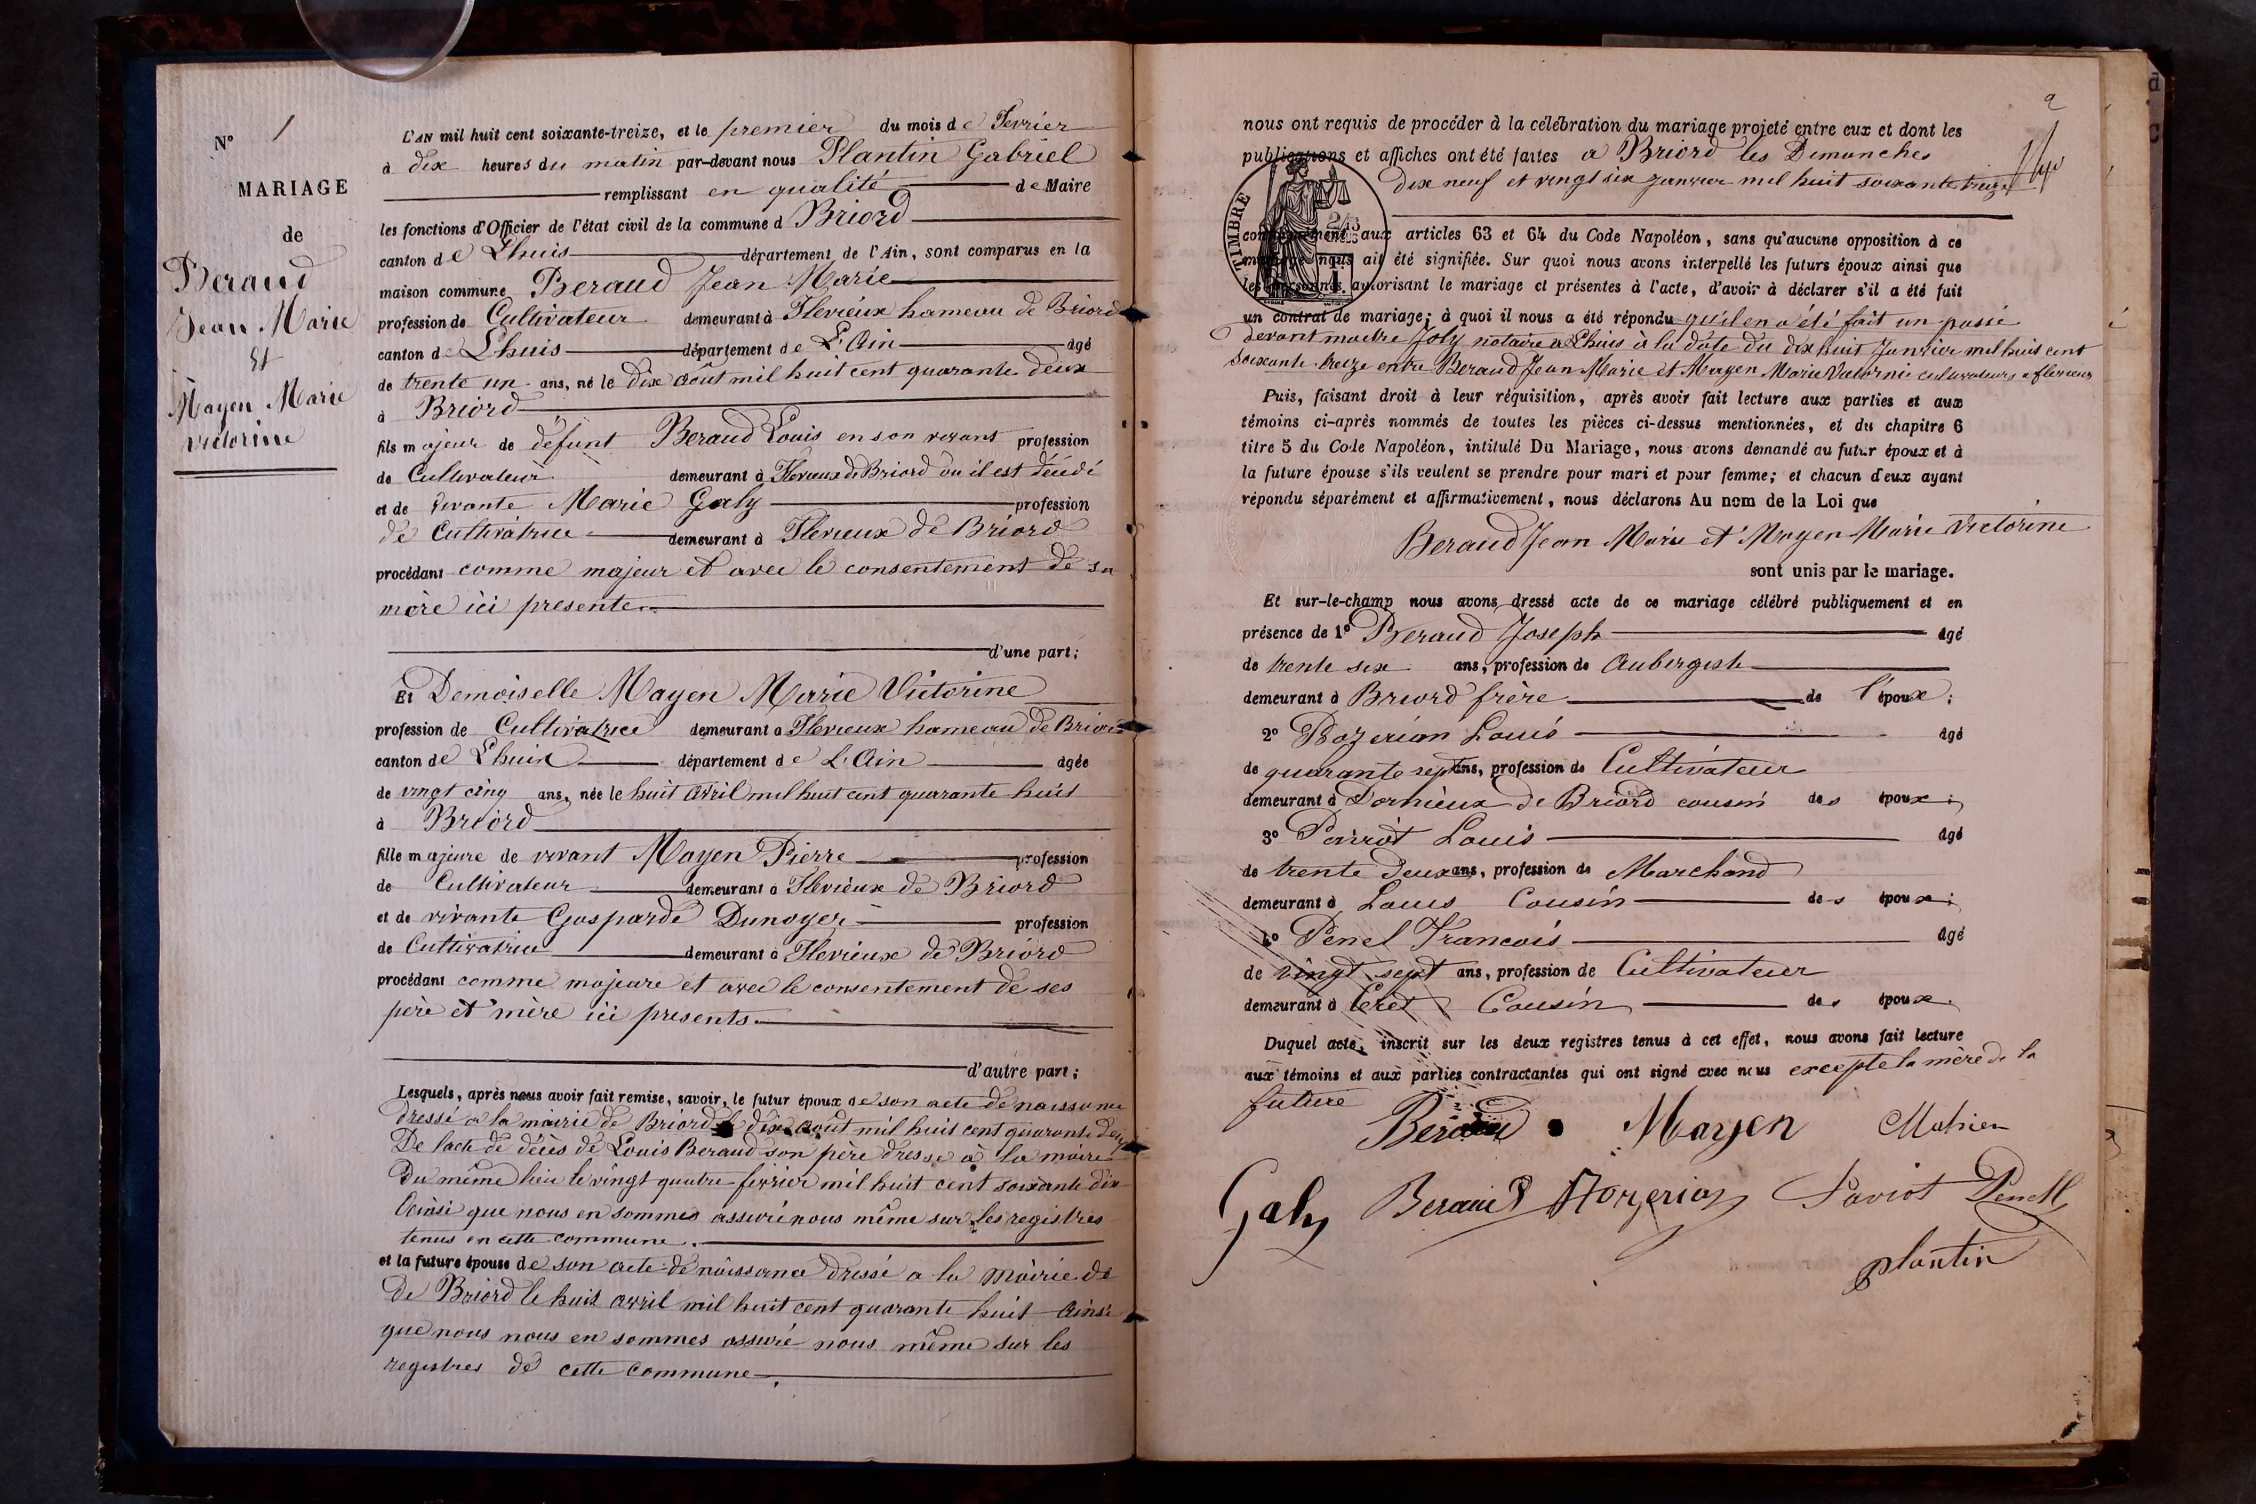 N° 1
MARIAGE
de
Beraud
Jean Marie
Et
Mayen Marie
Victorine
L'AN mil huit cent soixante-treize, et le premier du mois de Fevrier
à dix heures du matin par-devant nous Plantin Gabriel
remplissant en qualité de Maire
les fonctions d'Officier de l'état civil de la commune d Briord
canton de Lhuis département de l'Ain, sont comparus en la
maison commune Beraud Jean Marie
profession de Cultivateur demeurant à Flevieux hameau de Briord
canton de Lhuis département de L'Ain âgé
de trente un ans, né le dix août mil huit cent quarante deux
à Briord
fils majeur de défunt Beraud Louis en son vivant profession
de Cultivateur demeurant à Flevieux de Briord ou il est décédé
et de vivante Marie Galy profession
de Cultivatrice demeurant à Flevieux de Briord
procédant comme majeur et avec le consentement de sa
mère ici presente
d'une part;
Et Demoiselle Mayen Marie Victorine
profession de Cultivatrice demeurant à Flevieux hameau de Briord
canton de Lhuis département de L'Ain âgée
de vingt cinq ans, née le huit avril mil huit cent quarante huit
à Briord
fille majeure de vivant Mayen Pierre profession
de Cultivateur demeurant à Flevieux de Briord
et de vivante Gasparde Dunoyer profession
de Cultivatrice demeurant à Flevieux de Briord
procédant comme majeure et avec le consentement de ses
père et mère ici presents
d'autre part;
Lesquels, après nous avoir fait remise, savoir, le futur époux de son acte de naissance
dressé a la mairie de Briord le dix août mil huit cent quarante deux
De lacte de décès de Louis Beraud son père dressé à la mairie
du même lieu le vingt quatre fevrier mil huit cent soixante dix
Ainsi que nous en sommes assuré nous même sur les registres
tenus en cette commune.
et la future épouse de son acte de naissance dressé a la mairie de
de Briord le huit avril mil huit cent quarante huit Ainsi
que nous nous en sommes assuré nous même sur les
registres de cette commune
2
nous ont requis de procéder à la célébration du mariage projeté entre eux et dont les
publications et affiches ont été faites a Briord les Dimanches
dix neuf et vingt six janvier mil huit soixante treize
TIMBRE
conformément aux articles 63 et 64 du Code Napoléon, sans qu'aucune opposition à ce
mariage nous ait été signifiée. Sur quoi nous avons interpellé les futurs époux ainsi que
les personnes autorisant le mariage et présentes à l'acte, d'avoir à déclarer s'il a été fait
un contrat de mariage; à quoi il nous a été répondu qu'il en a été fait un passé
devant maitre Joly notaire a Lhuis à la date du dix huit Janvier mil huit cent
soixante treize entre Beraud Jean Marie et Mayen Marie Victorine cultivateurs a flevieux
Puis, faisant droit à leur réquisition, après avoir fait lecture aux parties et aux
témoins ci-après nommés de toutes les pièces ci-dessus mentionnées, et du chapitre 6
titre 5 du Code Napoléon, intitulé Du Mariage, nous avons demandé au futur époux et à
la future épouse s'ils veulent se prendre pour mari et pour femme; et chacun d'eux ayant
répondu séparément et affirmativement, nous déclarons Au nom de la Loi que
Beraud Jean Marie et Mayen Marie Victorine
sont unis par le mariage.
Et sur-le-champ nous avons dressé acte de ce mariage célébré publiquement et en
présence de 1° Beraud Joseph âgé
de trente six ans, profession de Aubergiste
demeurant à Briord frère de l'époux;
2° Bozerian Louis âgé
de quarante sept ans, profession de Cultivateur
demeurant à Dornieux de Briord cousin des époux;
3° Parrot Louis âgé
de trente deux ans, profession de Marchand
demeurant à Cousin des époux;
4° Penel Francois âgé
de vingt sept ans, profession de Cultivateur
demeurant à Cousin des époux.
Duquel acte, inscrit sur les deux registres tenus à cet effet, nous avons fait lecture
aux témoins et aux parties contractantes qui ont signé avec nous excepte la mère de la
future
Beraud Mayen
Galy Beraud Bozerian Pariot Penel
plantin